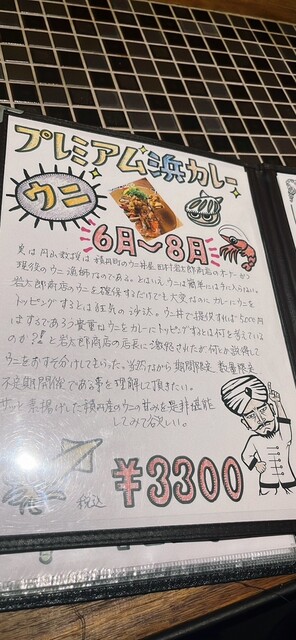 プレミアム浜カレー
ウニ
6月〜8月
実は円山教授は積丹町のウニ丼屋、田村岩太郎商店のオーナーかつ
現役のウニ漁師なのである。とはいえウニは簡単には手に入らない。
岩太郎商店のウニを確保するだけでも大変なのに カレーにウニを
トッピングするとは狂気の沙汰。ウニ丼で提供すれば5000円
はするであろう貴重なウニをカレーにトッピングするとは何を考えている
のか?!と岩太郎商店の店長に激怒されたが何とか説得して
ウニをおすそ分けしてもらった。当然ながら期間限定 数量限定
不定期開催である事を理解して頂きたい。
サッと素揚げした積丹産のウニの甘みを是非堪能
してみて欲しい。
税込 ¥3300